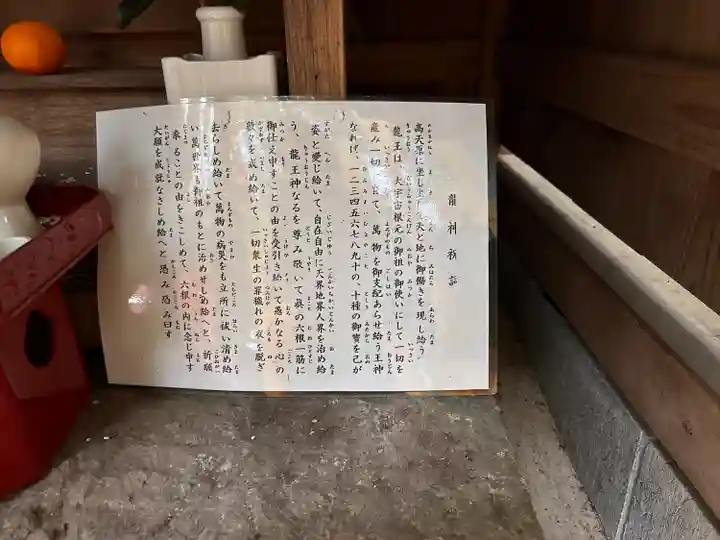 龍神祝詞
高天原に坐し坐して天と地に御働きを現し給う
龍王は、大宇宙根元の御祖の御使いにして一切を
産み一切を育て、萬物を御支配あらせ給う王神
なれば、一二三四五六七八九十の、十種の御寶を己が
姿と變じ給いて、自在自由に天界地界人界を治め給
う、龍王神なるを尊み敬いて眞の六根一筋に
御仕え申すことの由を受引き給いて愚かなる心の
数々を戒め給いて、一切衆生の罪穢れの衣を脱ぎ
去らしめ給いて萬物の病災をも立所に祓い清め給
い萬世界も御祖のもとに治めせしめ給へと、祈願
奉ることの由をきこしめて、六根の内に念じ申す
大願を成就なさしめ給へと恐み恐み白す